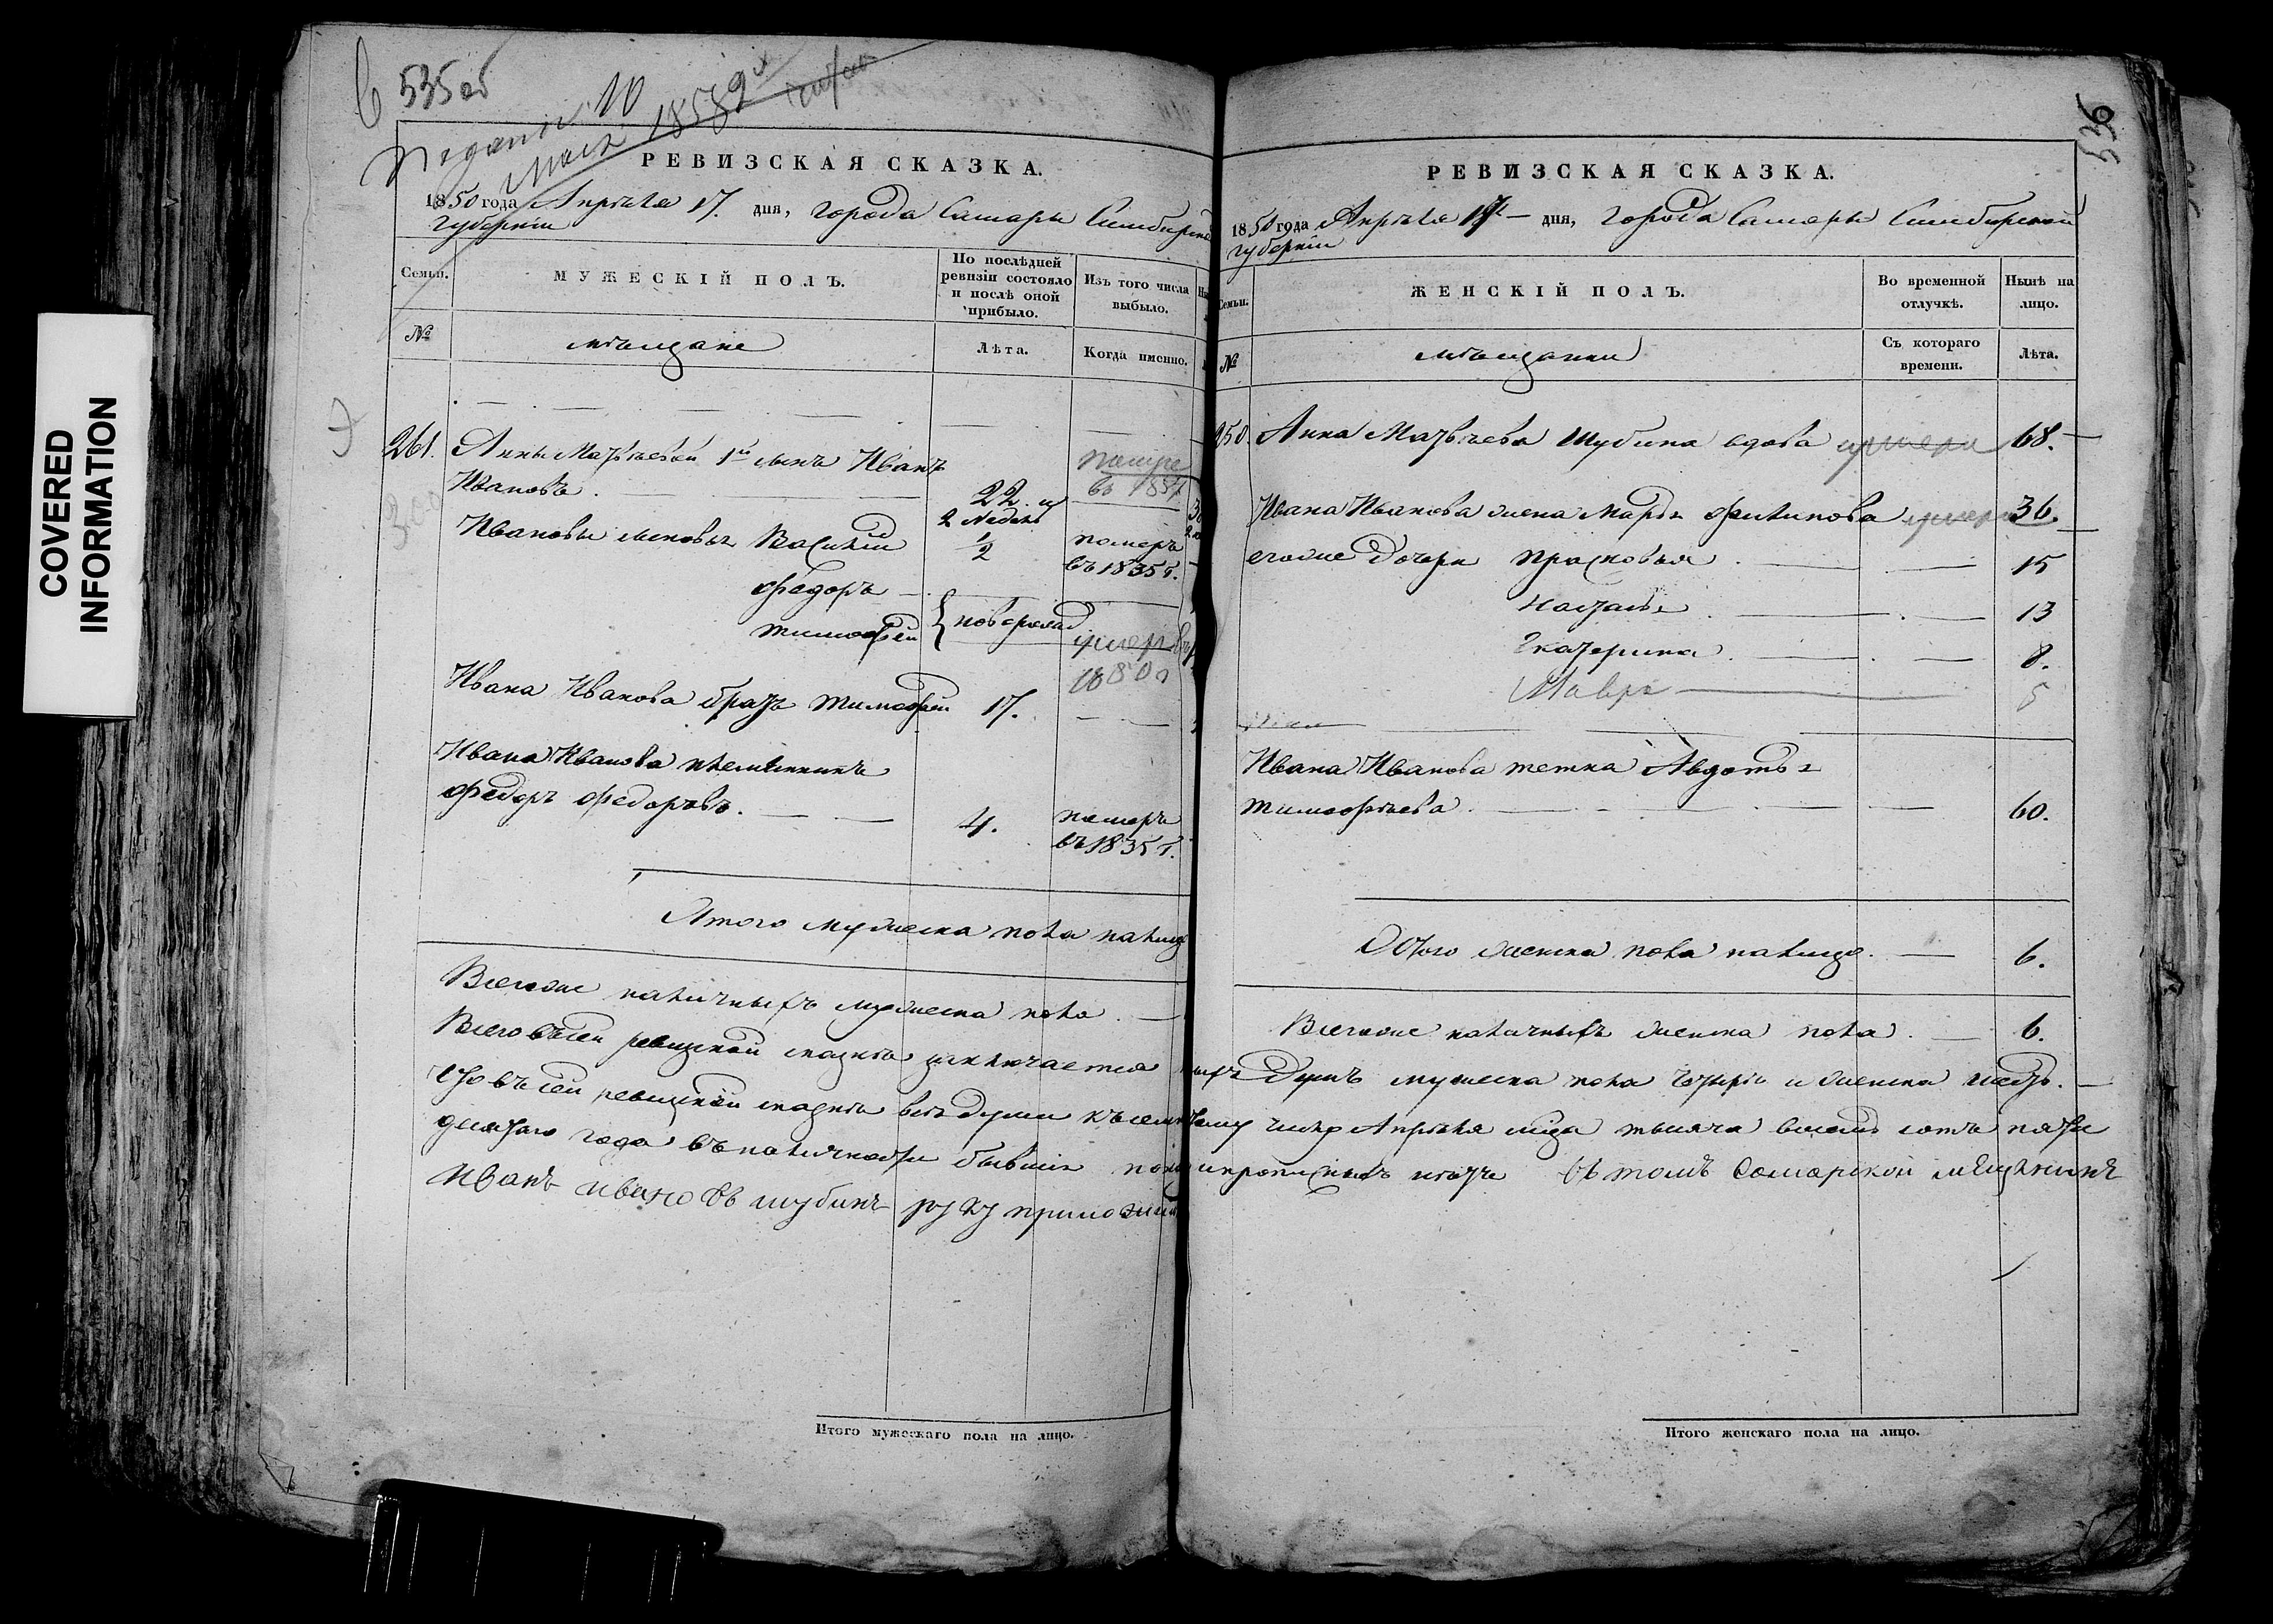 COVERED
INFORMATION
535 об
Подана 10
Мая 1858
РЕВИЗСКАЯ СКАЗКА.
1850 года Апрѣля 17. дня, города Самары Симбирской
губерніи
Семьи.
МУЖЕСКІЙ ПОЛЪ.
По послѣдней
ревизіи состояло
и послѣ оной
прибыло.
Изъ того числа
выбыло.
№
мѣщане
Лѣта.
Когда именно.
261. Анны Матвѣевой 1й сынъ Иванъ
Ивановъ. 22. и
2 недель
помре
въ 1854
Ивановы сыновья Василій 1/2 померъ
въ 1835 г.
Федоръ
Тимофей } новорожд
умеръ въ
1850 г
Ивана Иванова братъ Тимофей 17.
Ивана Иванова племянникъ
Федоръ Федоровъ. 4. померъ
въ 1835 г.
Итого мужеска пола налицо
Всегоже наличныхъ мужеска пола.
Всего въ сей ревизской сказкѣ заключается
Что въ сей ревизской сказкѣ всѣ души къ семнадцатому
десятаго года въ наличности бывшія
Иванъ Ивановъ Шубинъ руку приложилъ
Итого мужескаго пола на лицо.
536
РЕВИЗСКАЯ СКАЗКА.
1850 года Апрѣля 17 дня, города Самары Симбирской
губерніи
Семьи.
ЖЕНСКІЙ ПОЛЪ.
Во временной
отлучкѣ.
Нынѣ на
лицо.
№
мѣщанки
Съ котораго
времени.
Лѣта.
250. Анна Матвѣева Шубина вдова умерла 68.
Ивана Иванова жена Марья Филипова умерла 36.
егоже дочери Прасковья 15
Наталья 13
Екатерина 8.
Мавра 5
Ивана Иванова тетка Авдотья
Тимофѣева 60.
Итого женска пола налицо. 6.
Всегоже наличныхъ женска пола. 6.
душъ мужеска пола четыре и женска шесть.
числу Апрѣля мѣца тысяча восемь сотъ пять
и прописныхъ нѣтъ въ томъ Самарской мещенинъ
Итого женскаго пола на лицо.